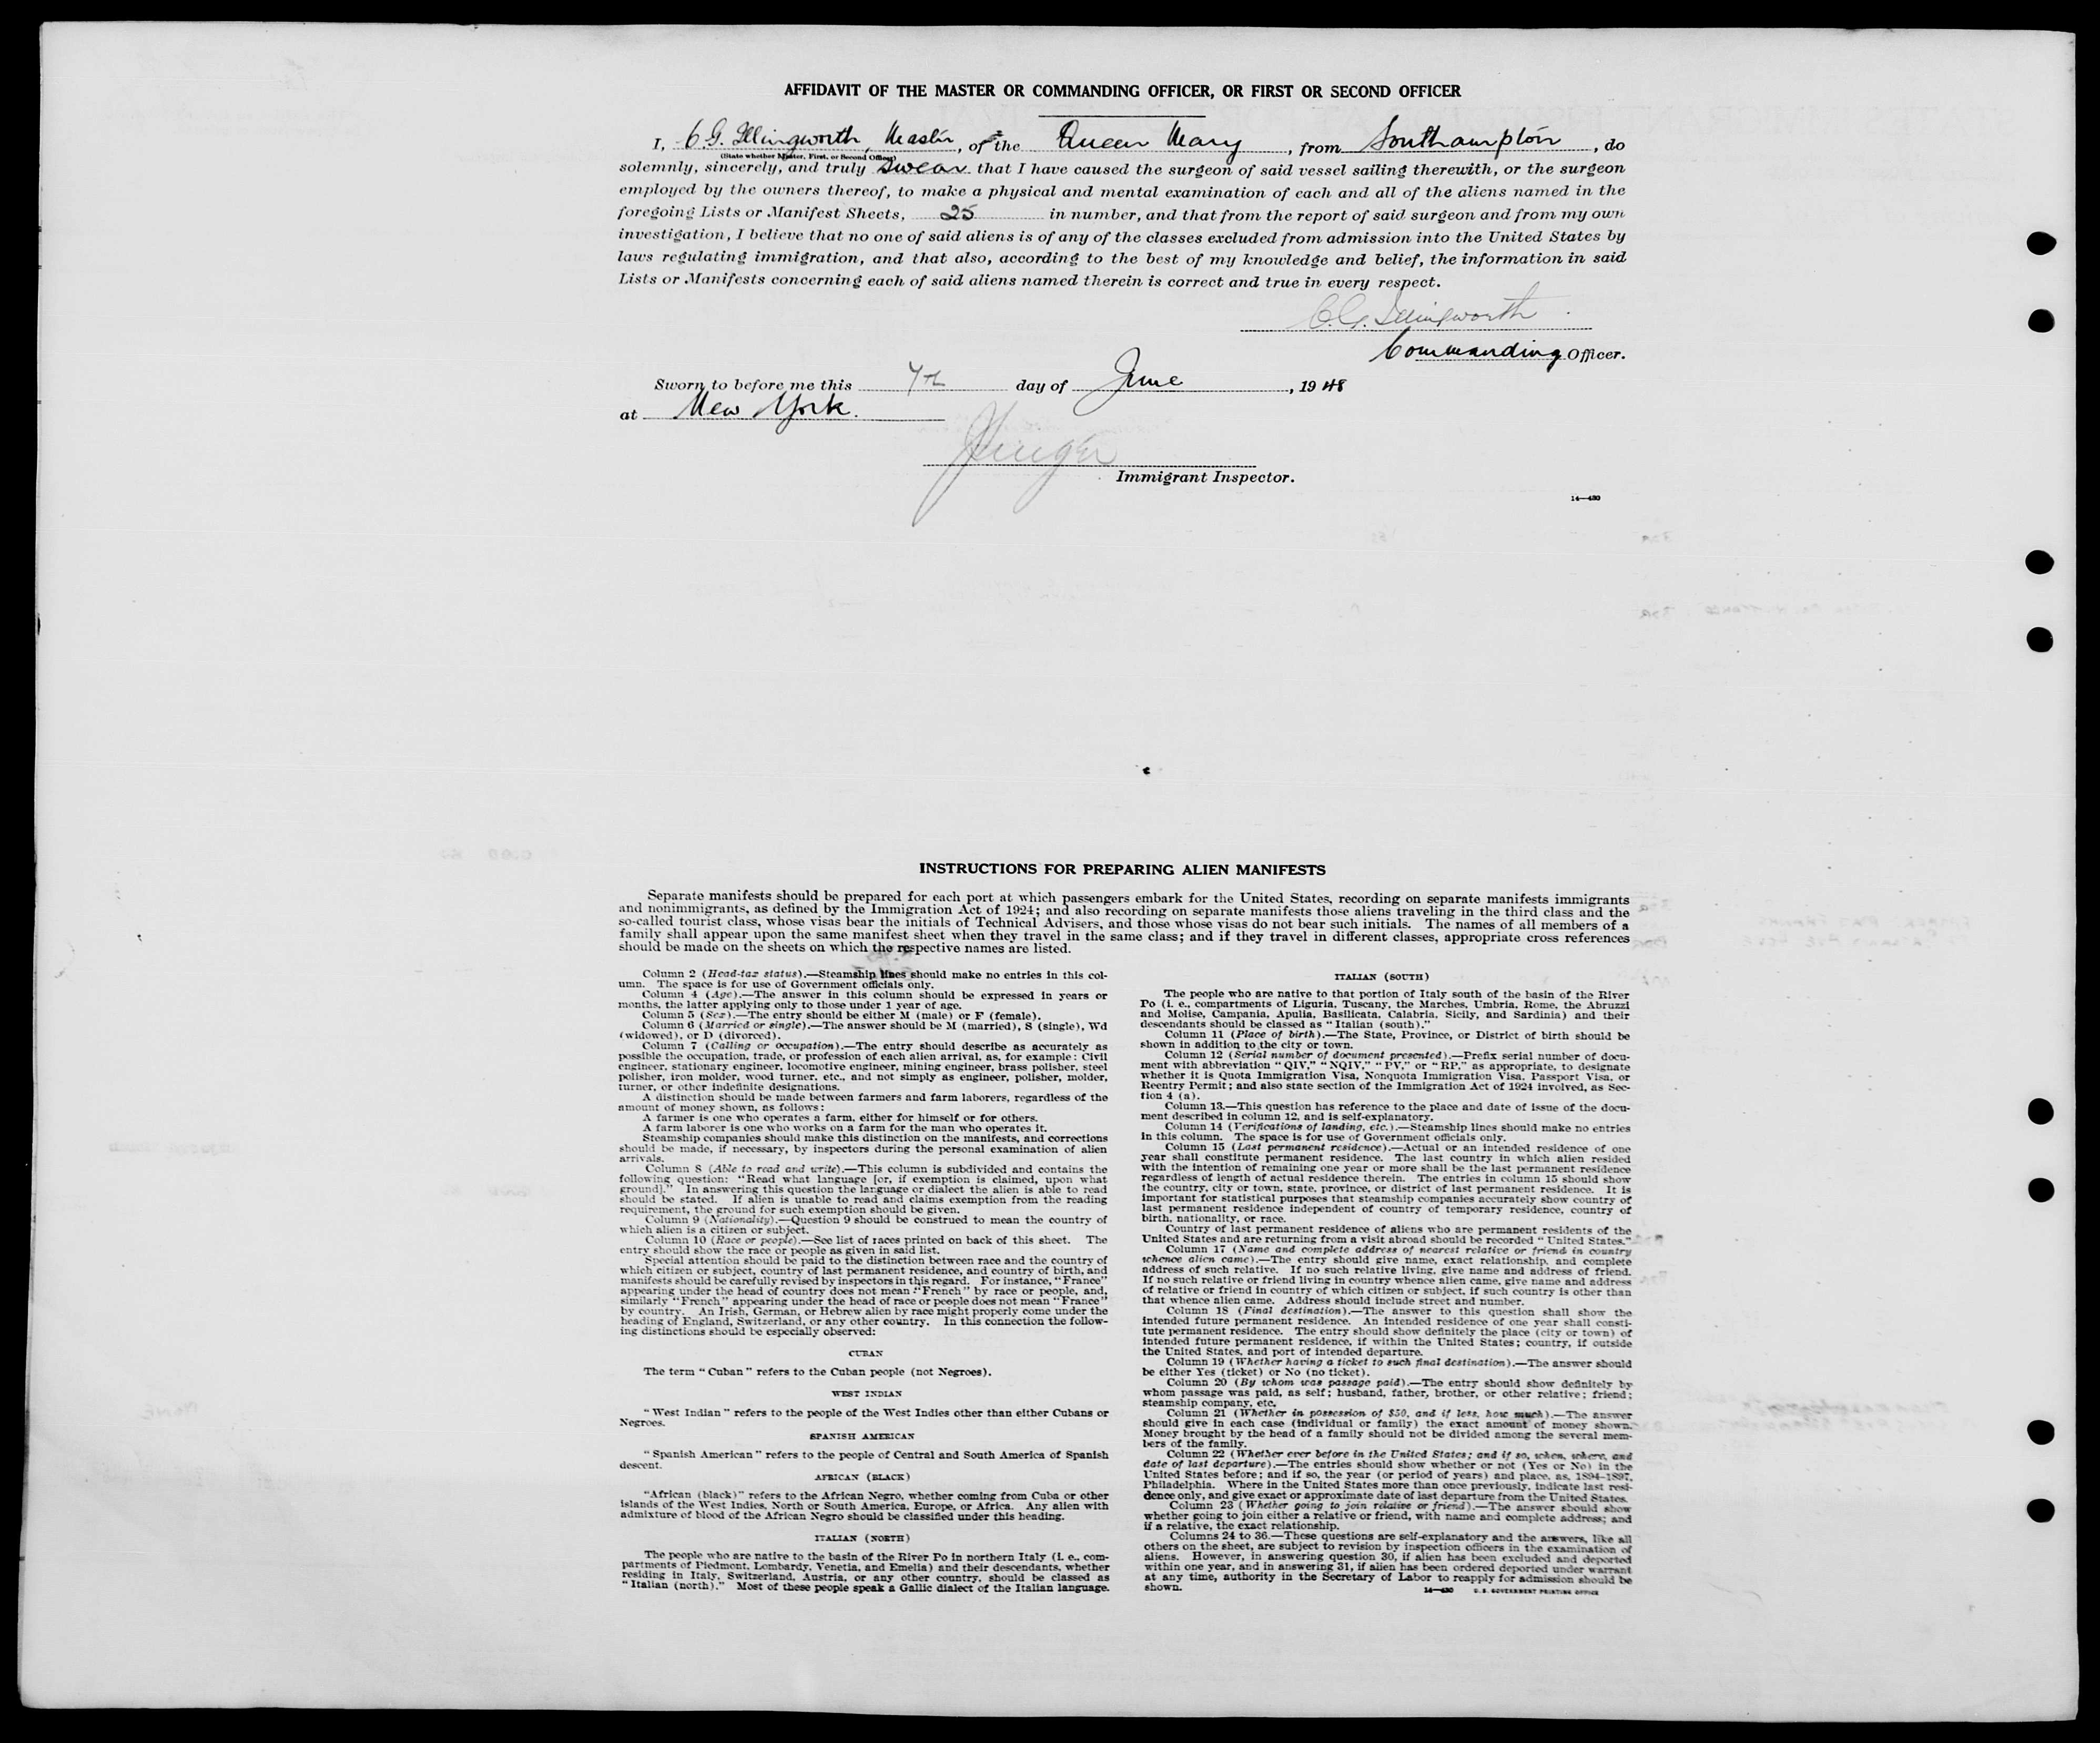 AFFIDAVIT OF THE MASTER OR COMMANDING OFFICER, OR FIRST OR SECOND OFFICER
I, C.G. Illingworth, Master, of the Queen Mary, from Southampton, do
(State whether Master, First, or Second Officer)
solemnly, sincerely, and truly swear that I have caused the surgeon of said vessel sailing therewith, or the surgeon
employed by the owners thereof, to make a physical and mental examination of each and all of the aliens named in the
foregoing Lists or Manifest Sheets, 25 in number, and that from the report of said surgeon and from my own
investigation, I believe that no one of said aliens is of any of the classes excluded from admission into the United States by
laws regulating immigration, and that also, according to the best of my knowledge and belief, the information in said
Lists or Manifests concerning each of said aliens named therein is correct and true in every respect.
C.G. Illingworth.
Commanding Officer.
Sworn to before me this day of June, 1948
at New York.
Immigrant Inspector.
14—430
INSTRUCTIONS FOR PREPARING ALIEN MANIFESTS
Separate manifests should be prepared for each port at which passengers embark for the United States, recording on separate manifests immigrants
and nonimmigrants, as defined by the Immigration Act of 1924; and also recording on separate manifests those aliens traveling in the third class and the
so-called tourist class, whose visas bear the initials of Technical Advisers, and those whose visas do not bear such initials. The names of all members of a
family shall appear upon the same manifest sheet when they travel in the same class; and if they travel in different classes, appropriate cross references
should be made on the sheets on which the respective names are listed.
Column 2 (Head-tax status).—Steamship lines should make no entries in this col-
umn. The space is for use of Government officials only.
Column 4 (Age).—The answer in this column should be expressed in years or
months, the latter applying only to those under 1 year of age.
Column 5 (Sex).—The entry should be either M (male) or F (female).
Column 6 (Married or single).—The answer should be M (married), S (single), Wd
(widowed), or D (divorced).
Column 7 (Calling or occupation).—The entry should describe as accurately as
possible the occupation, trade, or profession of each alien arrival, as, for example: Civil
engineer, stationary engineer, locomotive engineer, mining engineer, brass polisher, steel
polisher, iron molder, wood turner, etc., and not simply as engineer, polisher, molder,
turner, or other indefinite designations.
A distinction should be made between farmers and farm laborers, regardless of the
amount of money shown, as follows:
A farmer is one who operates a farm, either for himself or for others.
A farm laborer is one who works on a farm for the man who operates it.
Steamship companies should make this distinction on the manifests, and corrections
should be made, if necessary, by inspectors during the personal examination of alien
arrivals.
Column 8 (Able to read and write).—This column is subdivided and contains the
following question: "Read what language [or, if exemption is claimed, upon what
ground]." In answering this question the language or dialect the alien is able to read
should be stated. If alien is unable to read and claims exemption from the reading
requirement, the ground for such exemption should be given.
Column 9 (Nationality).—Question 9 should be construed to mean the country of
which alien is a citizen or subject.
Column 10 (Race or people).—See list of races printed on back of this sheet. The
entry should show the race or people as given in said list.
Special attention should be paid to the distinction between race and the country of
which citizen or subject, country of last permanent residence, and country of birth, and
manifests should be carefully revised by inspectors in this regard. For instance, "France"
appearing under the head of country does not mean "French" by race or people, and,
similarly "French" appearing under the head of race or people does not mean "France"
by country. An Irish, German, or Hebrew alien by race might properly come under the
heading of England, Switzerland, or any other country. In this connection the follow-
ing distinctions should be especially observed:
CUBAN
The term "Cuban" refers to the Cuban people (not Negroes).
WEST INDIAN
"West Indian" refers to the people of the West Indies other than either Cubans or
Negroes.
SPANISH AMERICAN
"Spanish American" refers to the people of Central and South America of Spanish
descent.
AFRICAN (BLACK)
"African (black)" refers to the African Negro, whether coming from Cuba or other
islands of the West Indies, North or South America, Europe, or Africa. Any alien with
admixture of blood of the African Negro should be classified under this heading.
ITALIAN (NORTH)
The people who are native to the basin of the River Po in northern Italy (i. e., com-
partments of Piedmont, Lombardy, Venetia, and Emelia) and their descendants, whether
residing in Italy, Switzerland, Austria, or any other country, should be classed as
"Italian (north)." Most of these people speak a Gallic dialect of the Italian language.
ITALIAN (SOUTH)
The people who are native to that portion of Italy south of the basin of the River
Po (i. e., compartments of Liguria, Tuscany, the Marches, Umbria, Rome, the Abruzzi
and Molise, Campania, Apulia, Basilicata, Calabria, Sicily, and Sardinia) and their
descendants should be classed as "Italian (south)."
Column 11 (Place of birth).—The State, Province, or District of birth should be
shown in addition to the city or town.
Column 12 (Serial number of document presented).—Prefix serial number of docu-
ment with abbreviation "QIV," "NQIV," "PV," or "RP," as appropriate, to designate
whether it is Quota Immigration Visa, Nonquota Immigration Visa, Passport Visa, or
Reentry Permit; and also state section of the Immigration Act of 1924 involved, as Sec-
tion 4 (a).
Column 13.—This question has reference to the place and date of issue of the docu-
ment described in column 12, and is self-explanatory.
Column 14 (Verifications of landing, etc.).—Steamship lines should make no entries
in this column. The space is for use of Government officials only.
Column 15 (Last permanent residence).—Actual or an intended residence of one
year shall constitute permanent residence. The last country in which alien resided
with the intention of remaining one year or more shall be the last permanent residence
regardless of length of actual residence therein. The entries in column 15 should show
the country, city or town, state, province, or district of last permanent residence. It is
important for statistical purposes that steamship companies accurately show country of
last permanent residence independent of country of temporary residence, country of
birth, nationality, or race.
Country of last permanent residence of aliens who are permanent residents of the
United States and are returning from a visit abroad should be recorded "United States."
Column 17 (Name and complete address of nearest relative or friend in country
whence alien came).—The entry should give name, exact relationship, and complete
address of such relative. If no such relative living, give name and address of friend.
If no such relative or friend living in country whence alien came, give name and address
of relative or friend in country of which citizen or subject, if such country is other than
that whence alien came. Address should include street and number.
Column 18 (Final destination).—The answer to this question shall show the
intended future permanent residence. An intended residence of one year shall consti-
tute permanent residence. The entry should show definitely the place (city or town) of
intended future permanent residence, if within the United States; country, if outside
the United States, and port of intended departure.
Column 19 (Whether having a ticket to such final destination).—The answer should
be either Yes (ticket) or No (no ticket).
Column 20 (By whom was passage paid).—The entry should show definitely by
whom passage was paid, as self; husband, father, brother, or other relative; friend;
steamship company, etc.
Column 21 (Whether in possession of $50, and if less, how much).—The answer
should give in each case (individual or family) the exact amount of money shown.
Money brought by the head of a family should not be divided among the several mem-
bers of the family.
Column 22 (Whether ever before in the United States; and if so, when, where, and
date of last departure).—The entries should show whether or not (Yes or No) in the
United States before; and if so, the year (or period of years) and place, as, 1894-1897,
Philadelphia. Where in the United States more than once previously, indicate last resi-
dence only, and give exact or approximate date of last departure from the United States.
Column 23 (Whether going to join relative or friend).—The answer should show
whether going to join either a relative or friend, with name and complete address; and
if a relative, the exact relationship.
Columns 24 to 36.—These questions are self-explanatory and the answers, like all
others on the sheet, are subject to revision by inspection officers in the examination of
aliens. However, in answering question 30, if alien has been excluded and deported
within one year, and in answering 31, if alien has been ordered deported under warrant
at any time, authority in the Secretary of Labor to reapply for admission should be
shown.
14—430 U. S. GOVERNMENT PRINTING OFFICE